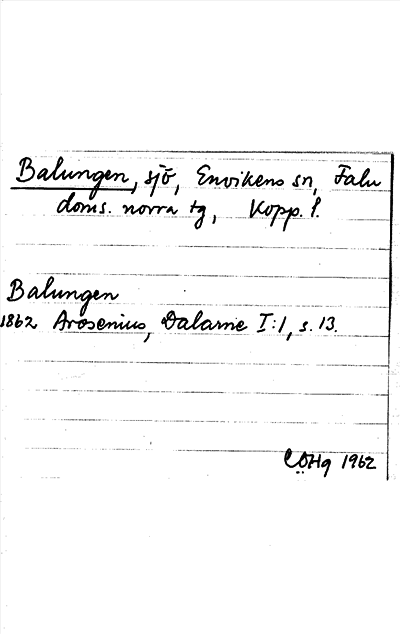 Balungen, sjö, Envikens sn, Falu
doms. norra tg, Kopp. l.
Balungen
1862 Arosenius, Dalarne I:1, s. 13.
CÖHg 1962